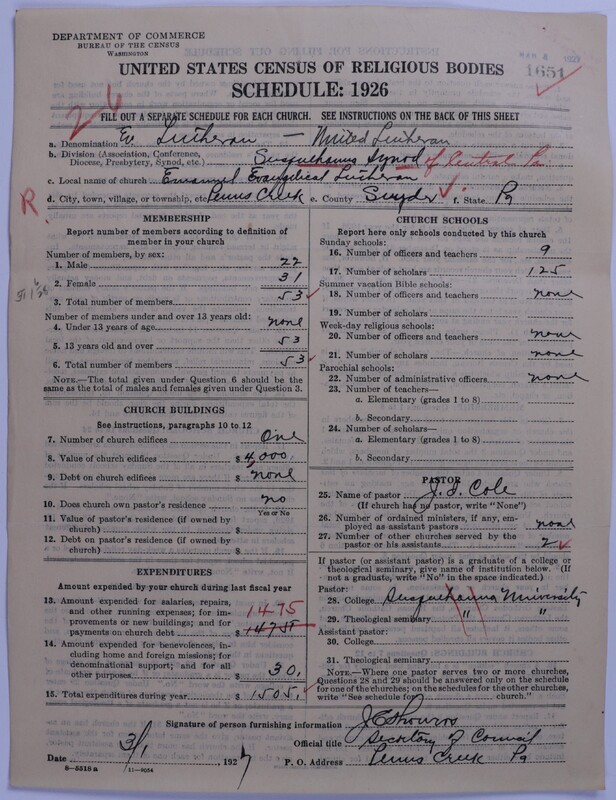 DEPARTMENT OF COMMERCE
BUREAU OF THE CENSUS
WASHINGTON
1651
UNITED STATES CENSUS OF RELIGIOUS BODIES
SCHEDULE: 1926
26
FILL OUT A SEPARATE SCHEDULE FOR EACH CHURCH. SEE INSTRUCTIONS ON THE BACK OF THIS SHEET
a. Denomination Ev. Lutheran — United Lutheran
b. Division (Association, Conference, Diocese, Presbytery, Synod, etc.) Susquehanna Synod of Central Pa
c. Local name of church Emanuel Evangelical Lutheran
R.
d. City, town, village, or township, etc. Penns Creek e. County Snyder f. State Pa
MEMBERSHIP
Report number of members according to definition of
member in your church
Number of members, by sex:
1. Male 22
2. Female 31
3. Total number of members 53
Number of members under and over 13 years old:
4. Under 13 years of age none
5. 13 years old and over 53
6. Total number of members 53
NOTE.—The total given under Question 6 should be the
same as the total of males and females given under Question 3.
CHURCH BUILDINGS
See instructions, paragraphs 10 to 12
7. Number of church edifices One
8. Value of church edifices $ 4,000.
9. Debt on church edifices $ none
10. Does church own pastor's residence no
Yes or No
11. Value of pastor's residence (if owned by
church) $
12. Debt on pastor's residence (if owned by
church) $
EXPENDITURES
Amount expended by your church during last fiscal year
13. Amount expended for salaries, repairs,
and other running expenses; for im- 1475
provements or new buildings; and for
payments on church debt $ 1475
14. Amount expended for benevolences, in-
cluding home and foreign missions; for
denominational support; and for all
other purposes $ 30.
15. Total expenditures during year $ 1505.
CHURCH SCHOOLS
Report here only schools conducted by this church
Sunday schools:
16. Number of officers and teachers 9
17. Number of scholars 125
Summer vacation Bible schools:
18. Number of officers and teachers none
19. Number of scholars
Week-day religious schools:
20. Number of officers and teachers none
21. Number of scholars none
Parochial schools:
22. Number of administrative officers none
23. Number of teachers—
a. Elementary (grades 1 to 8)
b. Secondary
24. Number of scholars—
a. Elementary (grades 1 to 8)
b. Secondary
PASTOR
25. Name of pastor J. I. Cole
(If church had no pastor, write "None")
26. Number of ordained ministers, if any, em-
ployed as assistant pastors none
27. Number of other churches served by the
pastor or his assistants 2
If pastor (or assistant pastor) is a graduate of a college or
theological seminary, give name of institution below. (If
not a graduate, write "No" in the space indicated.)
Pastor:
28. College Susquehanna University
29. Theological seminary " "
Assistant pastor:
30. College
31. Theological seminary
NOTE.—Where one pastor serves two or more churches,
Questions 28 and 29 should be answered only on the schedule
for one of the churches; on the schedules for the other churches,
write "See schedule for church."
Signature of person furnishing information
Official title Secretary of Council
Date 3/1 1927 P. O. Address Penns Creek Pa
8—5518 a 11—9034